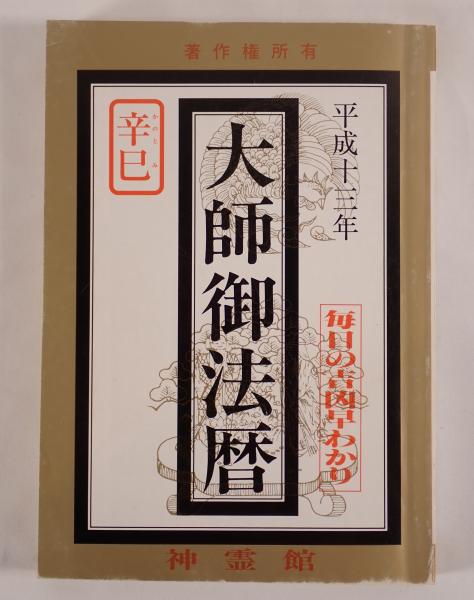 著作権所有
平成十三年
大師御法暦
辛巳
かのとみ
毎日の吉凶早わかり
神霊館